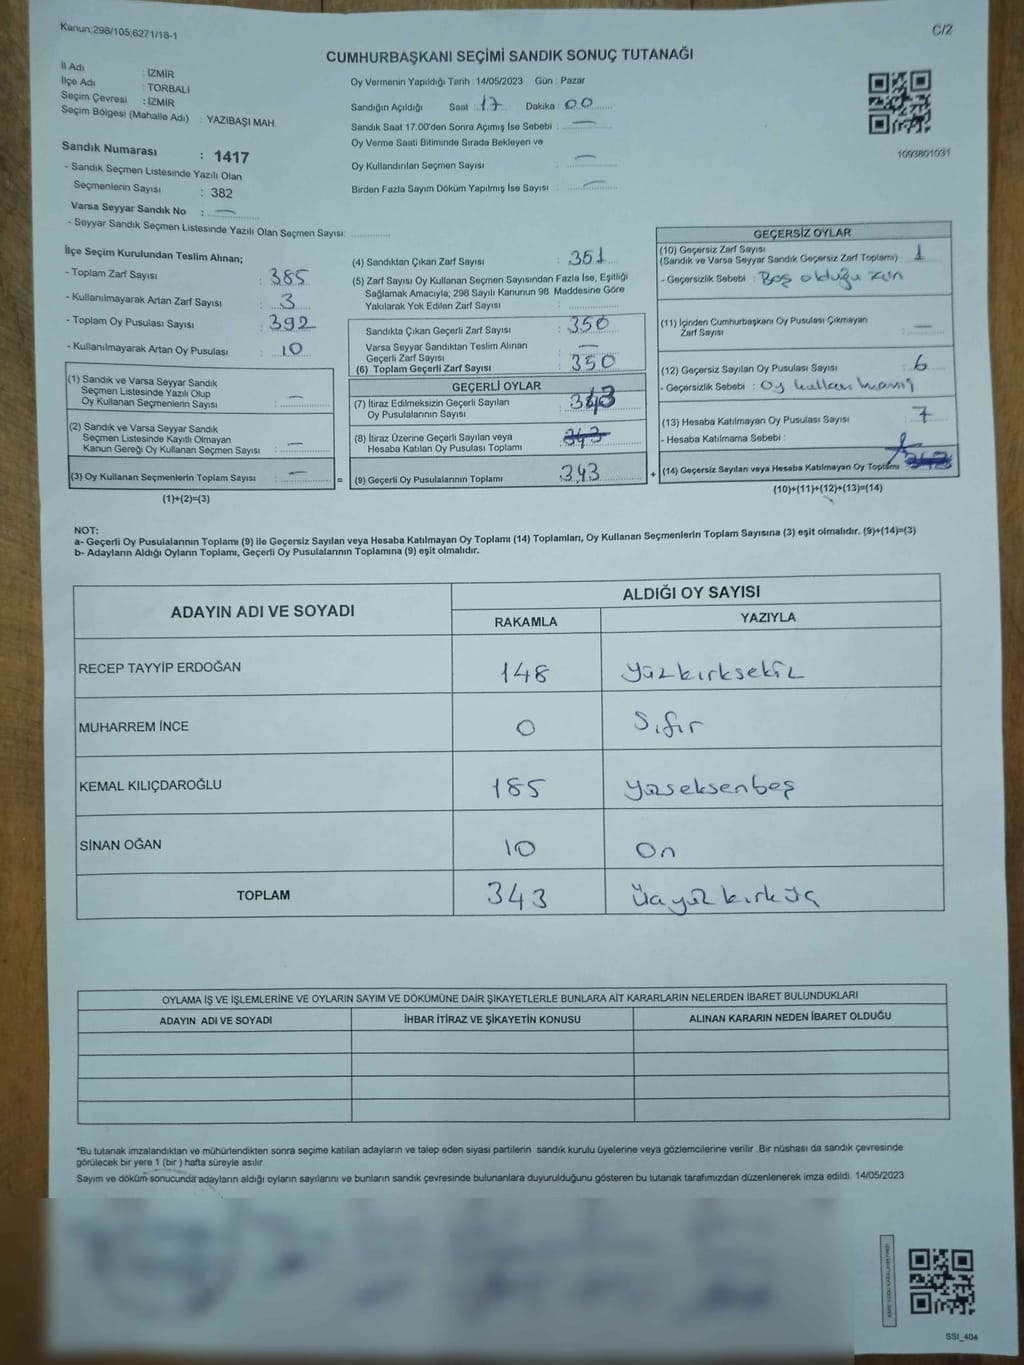 Kanun;298/105,6271/18-1
C/2
CUMHURBAŞKANI SEÇİMİ SANDIK SONUÇ TUTANAĞI
İl Adı : İZMİR
İlçe Adı : TORBALI
Seçim Çevresi : İZMİR
Seçim Bölgesi (Mahalle Adı) : YAZIBAŞI MAH.
Sandık Numarası : 1417
- Sandık Seçmen Listesinde Yazılı Olan
Seçmenlerin Sayısı : 382
Varsa Seyyar Sandık No : —
- Seyyar Sandık Seçmen Listesinde Yazılı Olan Seçmen Sayısı:
Oy Vermenin Yapıldığı Tarih : 14/05/2023 Gün : Pazar
Sandığın Açıldığı Saat : 17 Dakika : 00
Sandık Saat 17:00'den Sonra Açımış İse Sebebi : —
Oy Verme Saati Bitiminde Sırada Bekleyen ve
Oy Kullandırılan Seçmen Sayısı : —
Birden Fazla Sayım Döküm Yapılmış İse Sayısı : —
1093801031
İlçe Seçim Kurulundan Teslim Alınan;
- Toplam Zarf Sayısı : 385
- Kullanılmayarak Artan Zarf Sayısı : 3
- Toplam Oy Pusulası Sayısı : 392
- Kullanılmayarak Artan Oy Pusulası : 10
(1) Sandık ve Varsa Seyyar Sandık
Seçmen Listesinde Yazılı Olup
Oy Kullanan Seçmenlerin Sayısı : —
(2) Sandık ve Varsa Seyyar Sandık
Seçmen Listesinde Kayıtlı Olmayan
Kanun Gereği Oy Kullanan Seçmen Sayısı : —
(3) Oy Kullanan Seçmenlerin Toplam Sayısı : —
(1)+(2)=(3)
(4) Sandıktan Çıkan Zarf Sayısı : 351
(5) Zarf Sayısı Oy Kullanan Seçmen Sayısından Fazla İse, Eşitliği
Sağlamak Amacıyla, 298 Sayılı Kanunun 98. Maddesine Göre
Yakılarak Yok Edilen Zarf Sayısı :
Sandıkta Çıkan Geçerli Zarf Sayısı : 350
Varsa Seyyar Sandıktan Teslim Alınan
Geçerli Zarf Sayısı : —
(6) Toplam Geçerli Zarf Sayısı : 350
GEÇERLİ OYLAR
(7) İtiraz Edilmeksizin Geçerli Sayılan
Oy Pusulalarının Sayısı : 343
(8) İtiraz Üzerine Geçerli Sayılan veya
Hesaba Katılan Oy Pusulası Toplamı : 343
= (9) Geçerli Oy Pusulalarının Toplamı : 343 +
GEÇERSİZ OYLAR
(10) Geçersiz Zarf Sayısı
(Sandık ve Varsa Seyyar Sandık Geçersiz Zarf Toplamı) : 1
- Geçersizlik Sebebi : Boş olduğu için
(11) İçinden Cumhurbaşkanı Oy Pusulası Çıkmayan
Zarf Sayısı : —
(12) Geçersiz Sayılan Oy Pusulası Sayısı : 6
- Geçersizlik Sebebi : Oy kullanmamış
(13) Hesaba Katılmayan Oy Pusulası Sayısı : 7
- Hesaba Katılmama Sebebi :
(14) Geçersiz Sayılan veya Hesaba Katılmayan Oy Toplamı
(10)+(11)+(12)+(13)=(14)
NOT:
a- Geçerli Oy Pusulalarının Toplamı (9) ile Geçersiz Sayılan veya Hesaba Katılmayan Oy Toplamı (14) Toplamları, Oy Kullanan Seçmenlerin Toplam Sayısına (3) eşit olmalıdır. (9)+(14)=(3)
b- Adayların Aldığı Oyların Toplamı, Geçerli Oy Pusulalarının Toplamına (9) eşit olmalıdır.
ADAYIN ADI VE SOYADI
ALDIĞI OY SAYISI
RAKAMLA YAZIYLA
RECEP TAYYİP ERDOĞAN 148 yüzkırksekiz
MUHARREM İNCE 0 Sıfır
KEMAL KILIÇDAROĞLU 185 yüzseksenbeş
SİNAN OĞAN 10 On
TOPLAM 343 Üçyüzkırküç
OYLAMA İŞ VE İŞLEMLERİNE VE OYLARIN SAYIM VE DÖKÜMÜNE DAİR ŞİKAYETLERLE BUNLARA AİT KARARLARIN NELERDEN İBARET BULUNDUKLARI
ADAYIN ADI VE SOYADI İHBAR İTİRAZ VE ŞİKAYETİN KONUSU ALINAN KARARIN NEDEN İBARET OLDUĞU
*Bu tutanak imzalandıktan ve mühürlendikten sonra seçime katılan adayların ve talep eden siyasi partilerin sandık kurulu üyelerine veya gözlemcilerine verilir. Bir nüshası da sandık çevresinde
görülecek bir yere 1 (bir) hafta süreyle asılır.
Sayım ve döküm sonucunda adayların aldığı oyların sayılarını ve bunların sandık çevresinde bulunanlara duyurulduğunu gösteren bu tutanak tarafımızdan düzenlenerek imza edildi. 14/05/2023
SSI_404